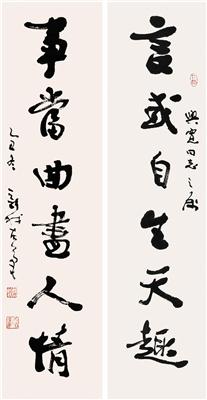 言或自生天趣
興寬同志之屬
事當曲盡人情
乙丑冬 新我左筆